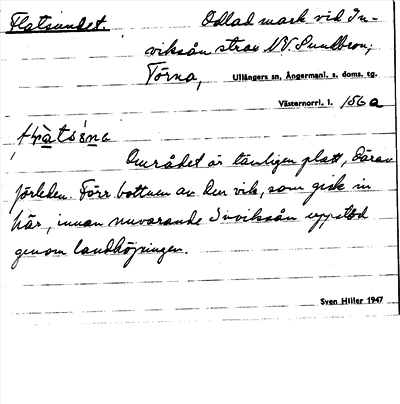 Flatsundet. Odlad mark vid In-
viksån strax NV. Sundbron,
Törna, Ullångers sn, Ångermanl. s. doms. tg.
Västernorrl. l. 156 a
Området är tämligen platt, därav
förleden. Förr bottnen av den vik, som gick in
här, innan nuvarande Inviksån uppstod
genom landhöjningen.
Sven Hiller 1947